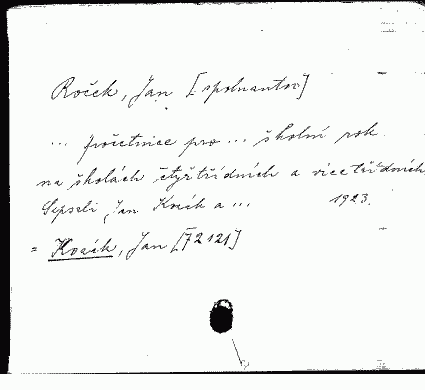 Roček, Jan [spoluautor]
... početnice pro ... školní rok
na školách čtyřtřídních a vícetřídních
Sepsali Jan Kozák a ... 1923.
= Kozák, Jan [72121]